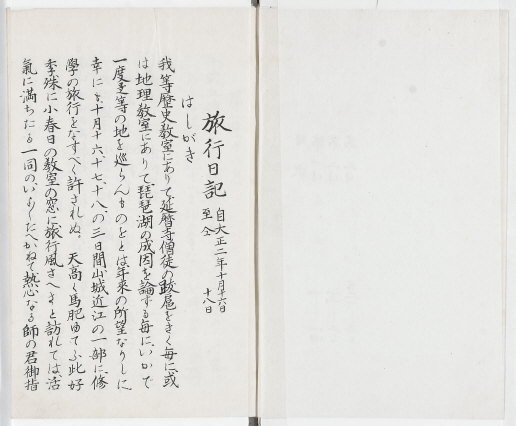 旅行日記
自大正二年十月十六日
至仝　十八日
はしがき
我等歴史教室にありて延暦寺僧徒の跋扈をきく毎に、或
は地理教室にありて琵琶湖の成因を論ずる毎に、いかで
一度是等の地を巡らんものをとは年来の所望なりしに、
幸にも十月十六、十七、十八、の三日間山城近江の一部に修
學の旅行をなすべく許されぬ。天高く馬肥ゆてふ此好
季殊に小春日の教室の窓に旅行風さへそと訪れては、活
氣に満ちたる一同のいかでたへかねて熱心なる師の君御指